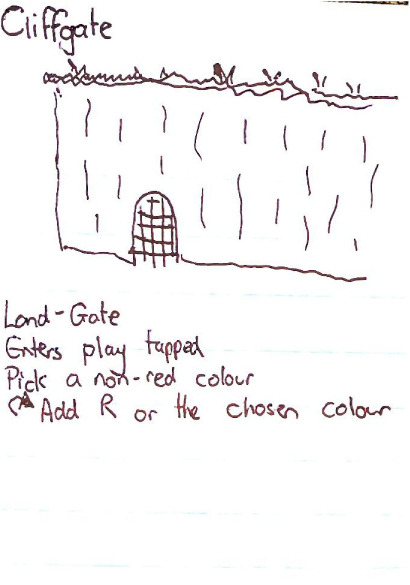 Cliffgate
Land-Gate
Enters play tapped
Pick a non-red colour
Add R or the chosen colour